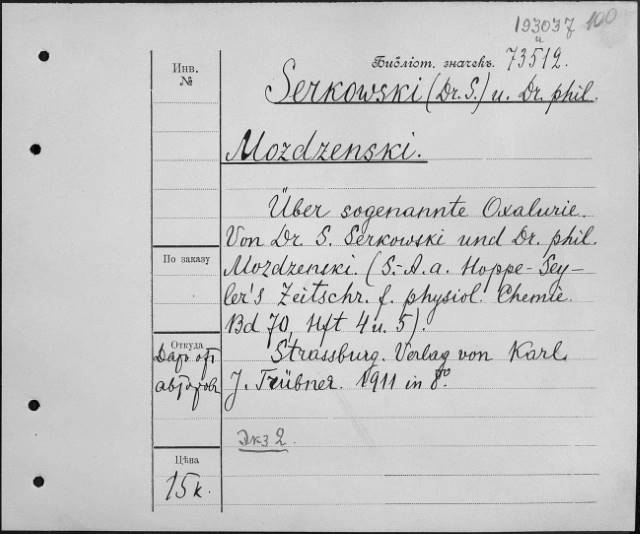 193037 100
и
Инв.
№
Библіот. значекъ. 73512.
Serkowski (Dr. S.) u. Dr. phil.
Mozdzenski.
Über sogenannte Oxalurie.
Von Dr. S. Serkowski und Dr. phil.
По заказу
Mozdzenski. (S.-A. a. Hoppe-Sey-
ler's Zeitschr. f. physiol. Chemie.
Bd 70, Hft 4 u. 5).
Откуда
Даръ отъ
авторовъ
Strassburg. Verlag von Karl
J. Trübner. 1911 in 8º.
Экз 2.
Цѣна
15 к.